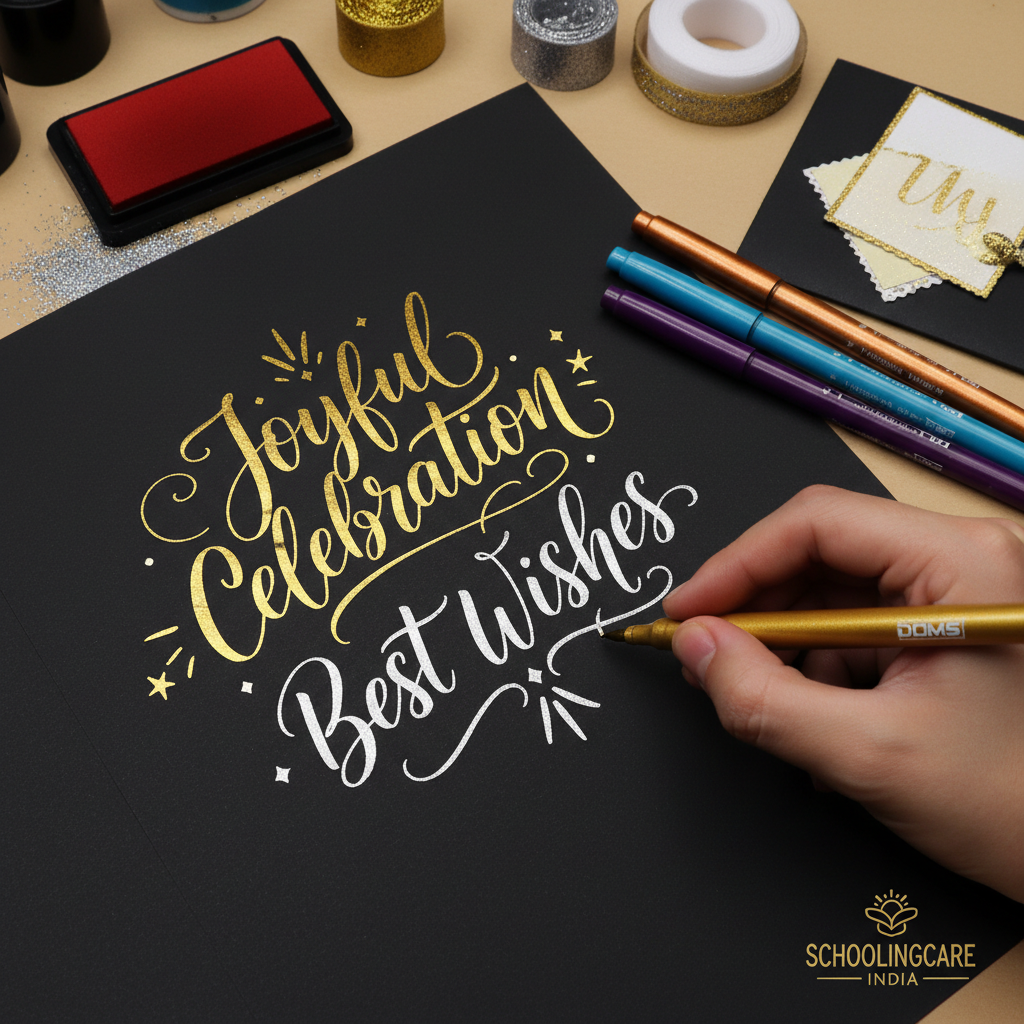 Joyful
Celebration
Best Wishes
DOMS
SCHOOLINGCARE
INDIA